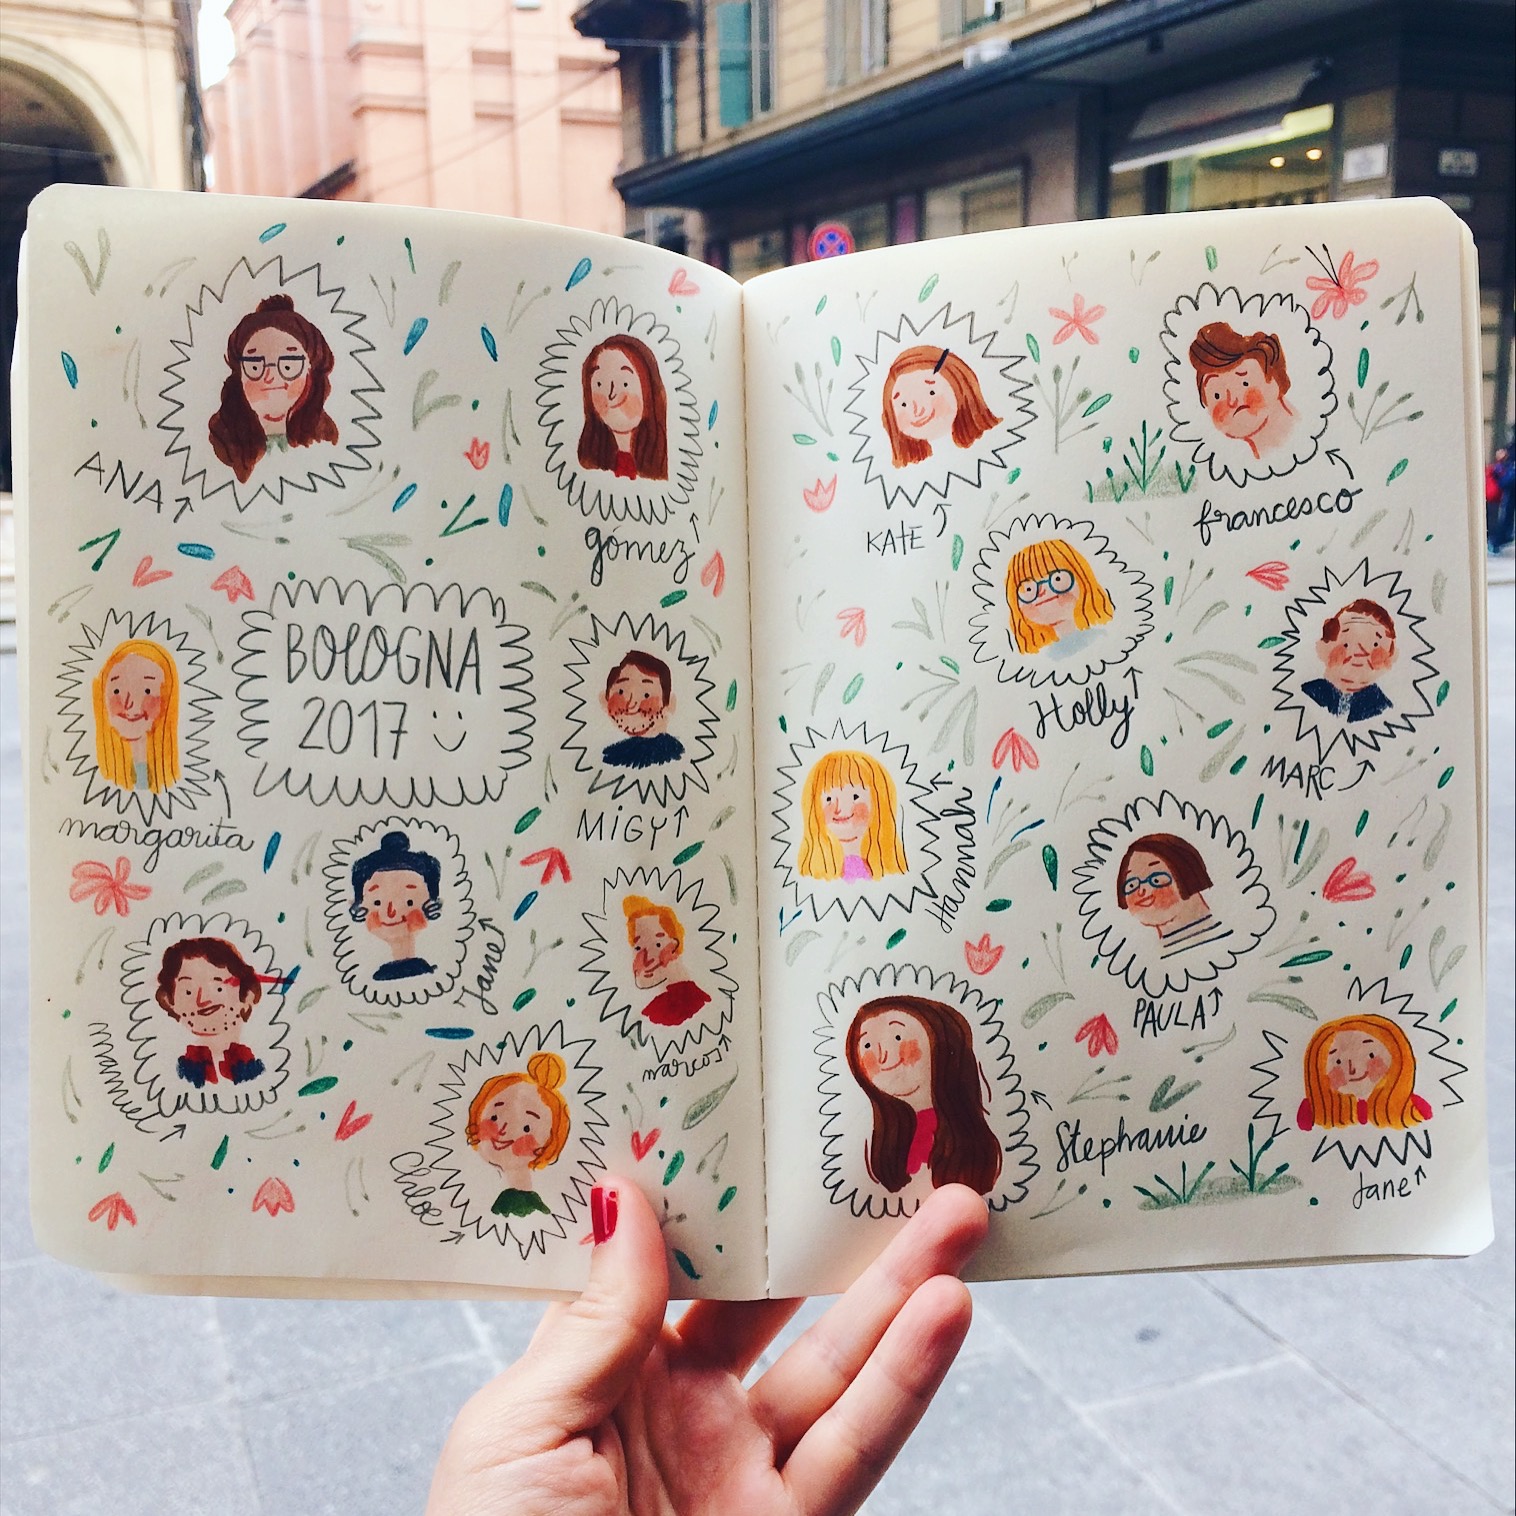 ANA
gómez
BOLOGNA
2017
margarita
MiGY
Jane
manuel
marcos
Chloe
KATE
francesco
Holly
MARC
Hannah
PAULA
Stephanie
Jane